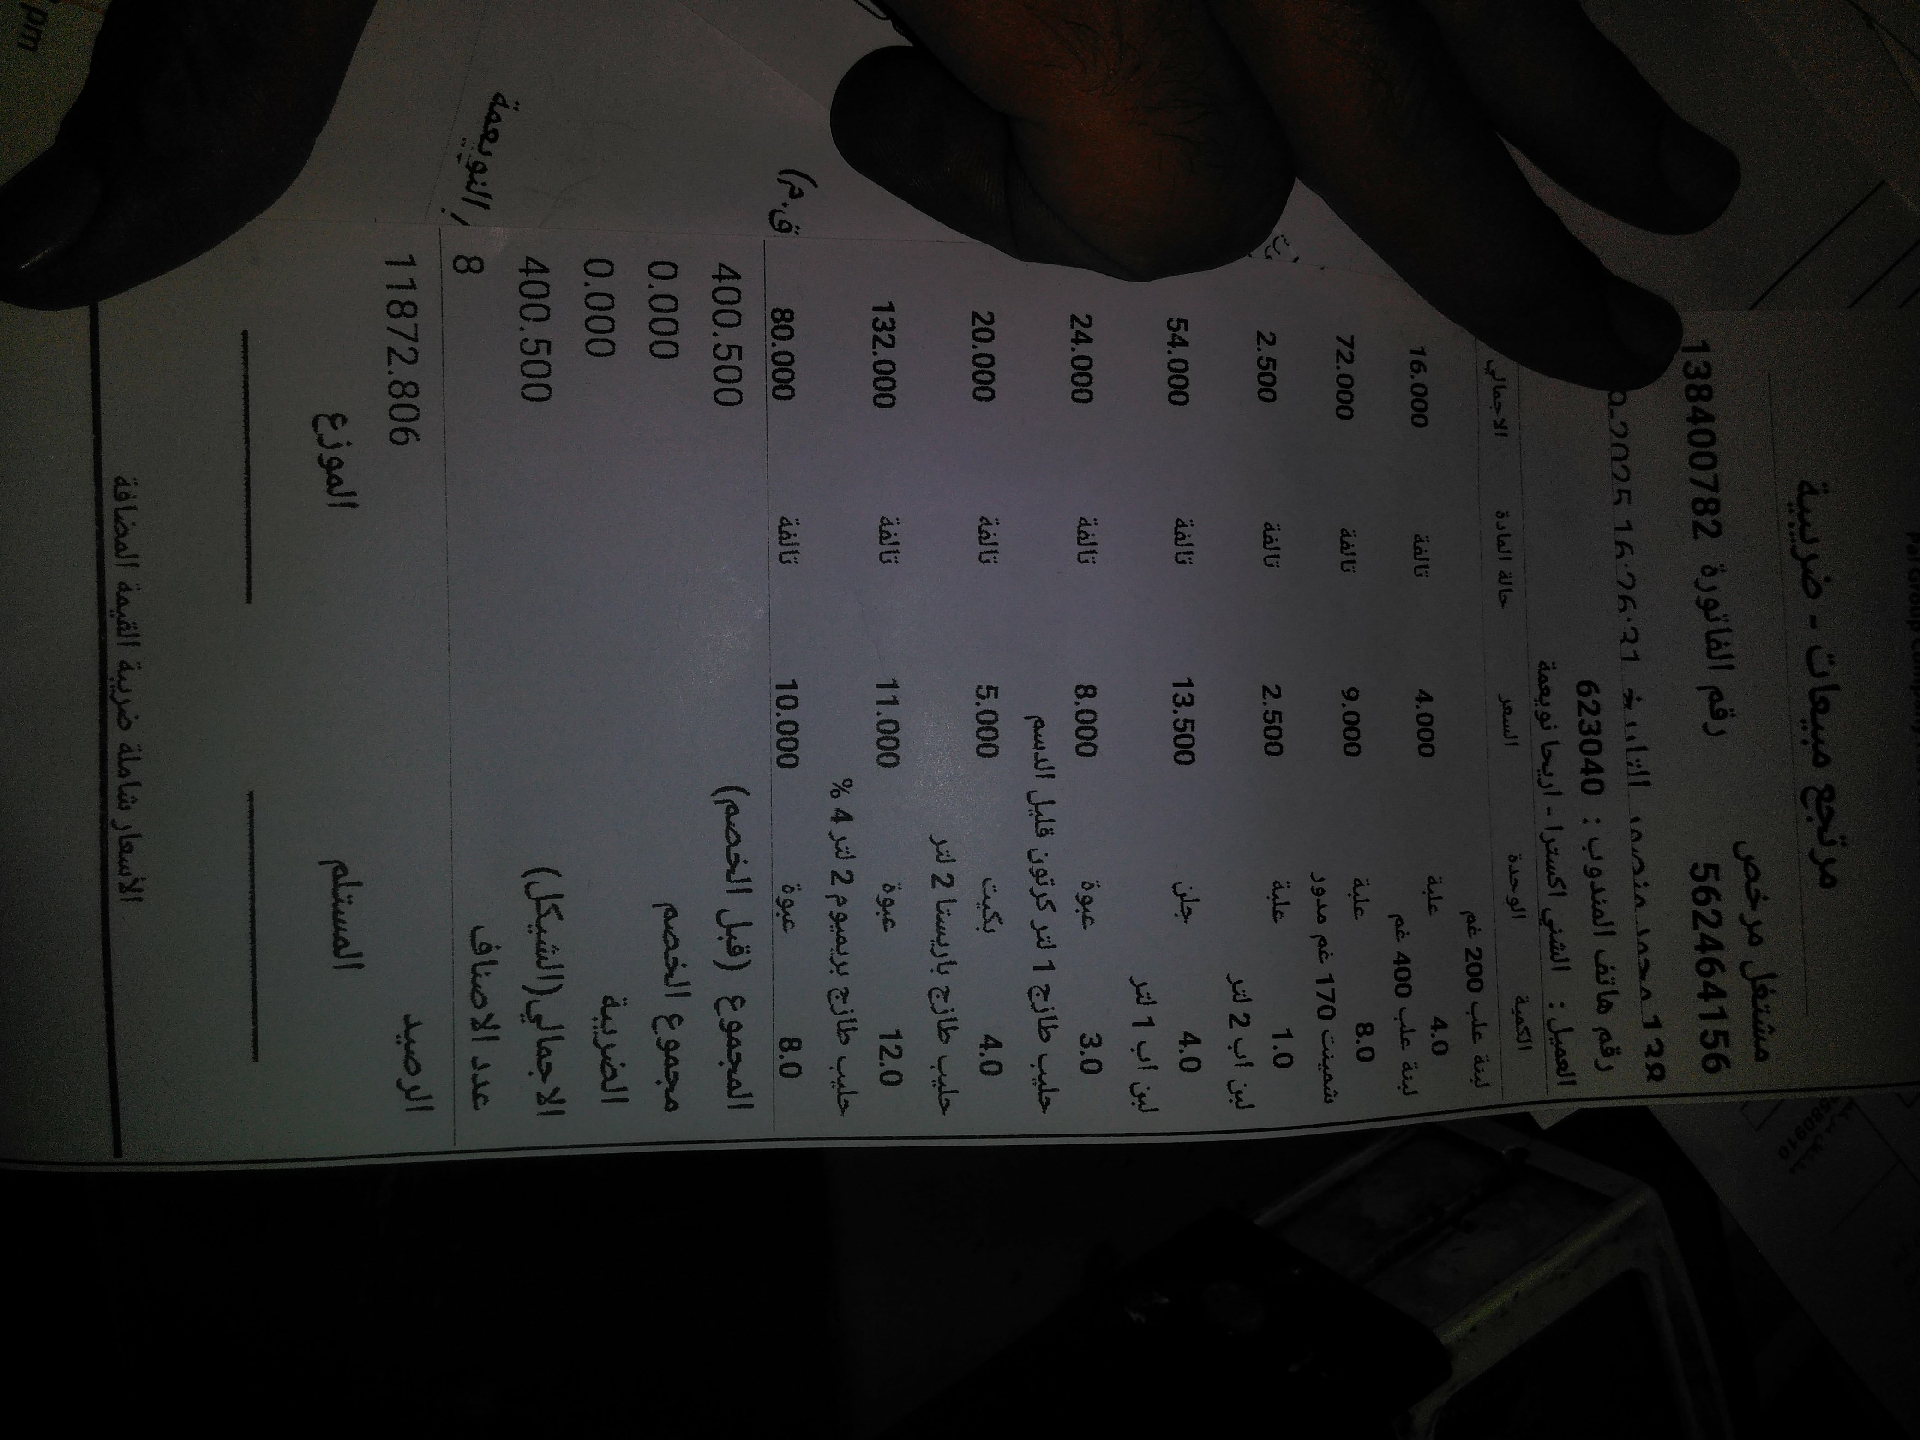 مرتجع مبيعات - ضريبية
مشتغل مرخص
562464156 رقم الفاتورة 138400782
128 محمد منصور التاريخ 2025 16:26:21
رقم هاتف المندوب : 623040
العميل : الشني اكسترا - اريحا نويعمة
الكمية الوحدة السعر حالة المادة الاجمالي
لبنة علب 200 غم
4.0 علبة 4.000 تالفة 16.000
لبنة علب 400 غم
8.0 علبة 9.000 تالفة 72.000
شمينت 170 غم مدور
1.0 علبة 2.500 تالفة 2.500
لبن اب 2 لتر
4.0 جلن 13.500 تالفة 54.000
لبن اب 1 لتر
3.0 عبوة 8.000 تالفة 24.000
حليب طازج 1 لتر كرتون قليل الدسم
4.0 بكيت 5.000 تالفة 20.000
حليب طازج باريستا 2 لتر
12.0 عبوة 11.000 تالفة 132.000
حليب طازج بريميوم 2 لتر 4 %
8.0 عبوة 10.000 تالفة 80.000
المجموع (قبل الخصم) 400.500
مجموع الخصم 0.000
الضريبة 0.000
الاجمالي(الشيكل) 400.500
عدد الاصناف 8
الرصيد 11872.806
المستلم الموزع
الأسعار شاملة ضريبة القيمة المضافة
ق.م)
النويعمة
pm